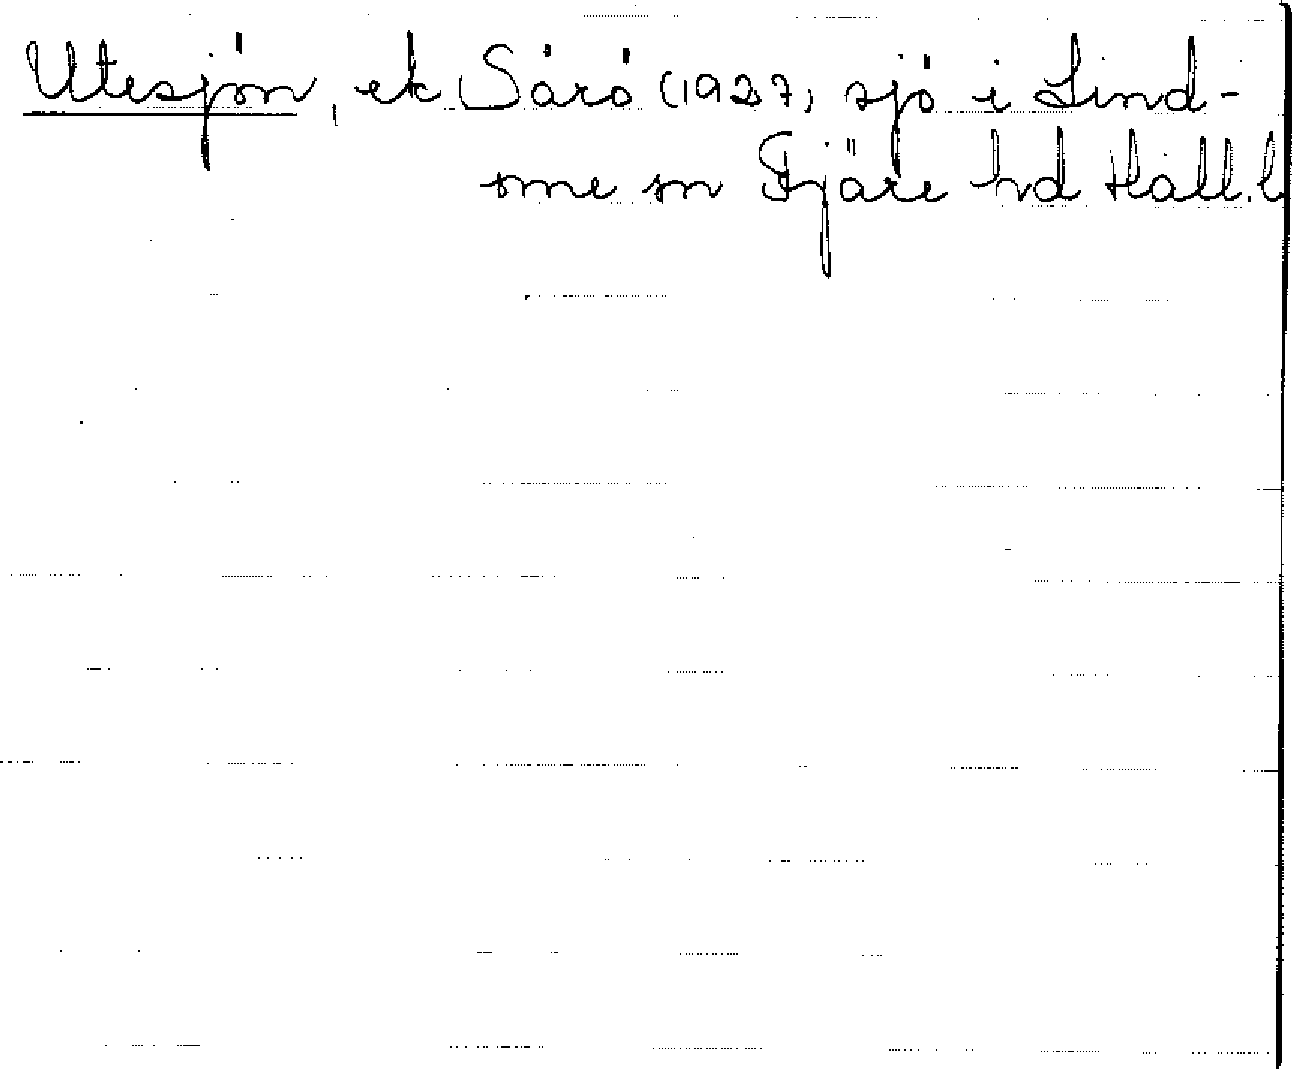 Utesjön, ek Särö (1937) sjö i Lind-
ome sn Fjäre hd Hall.l